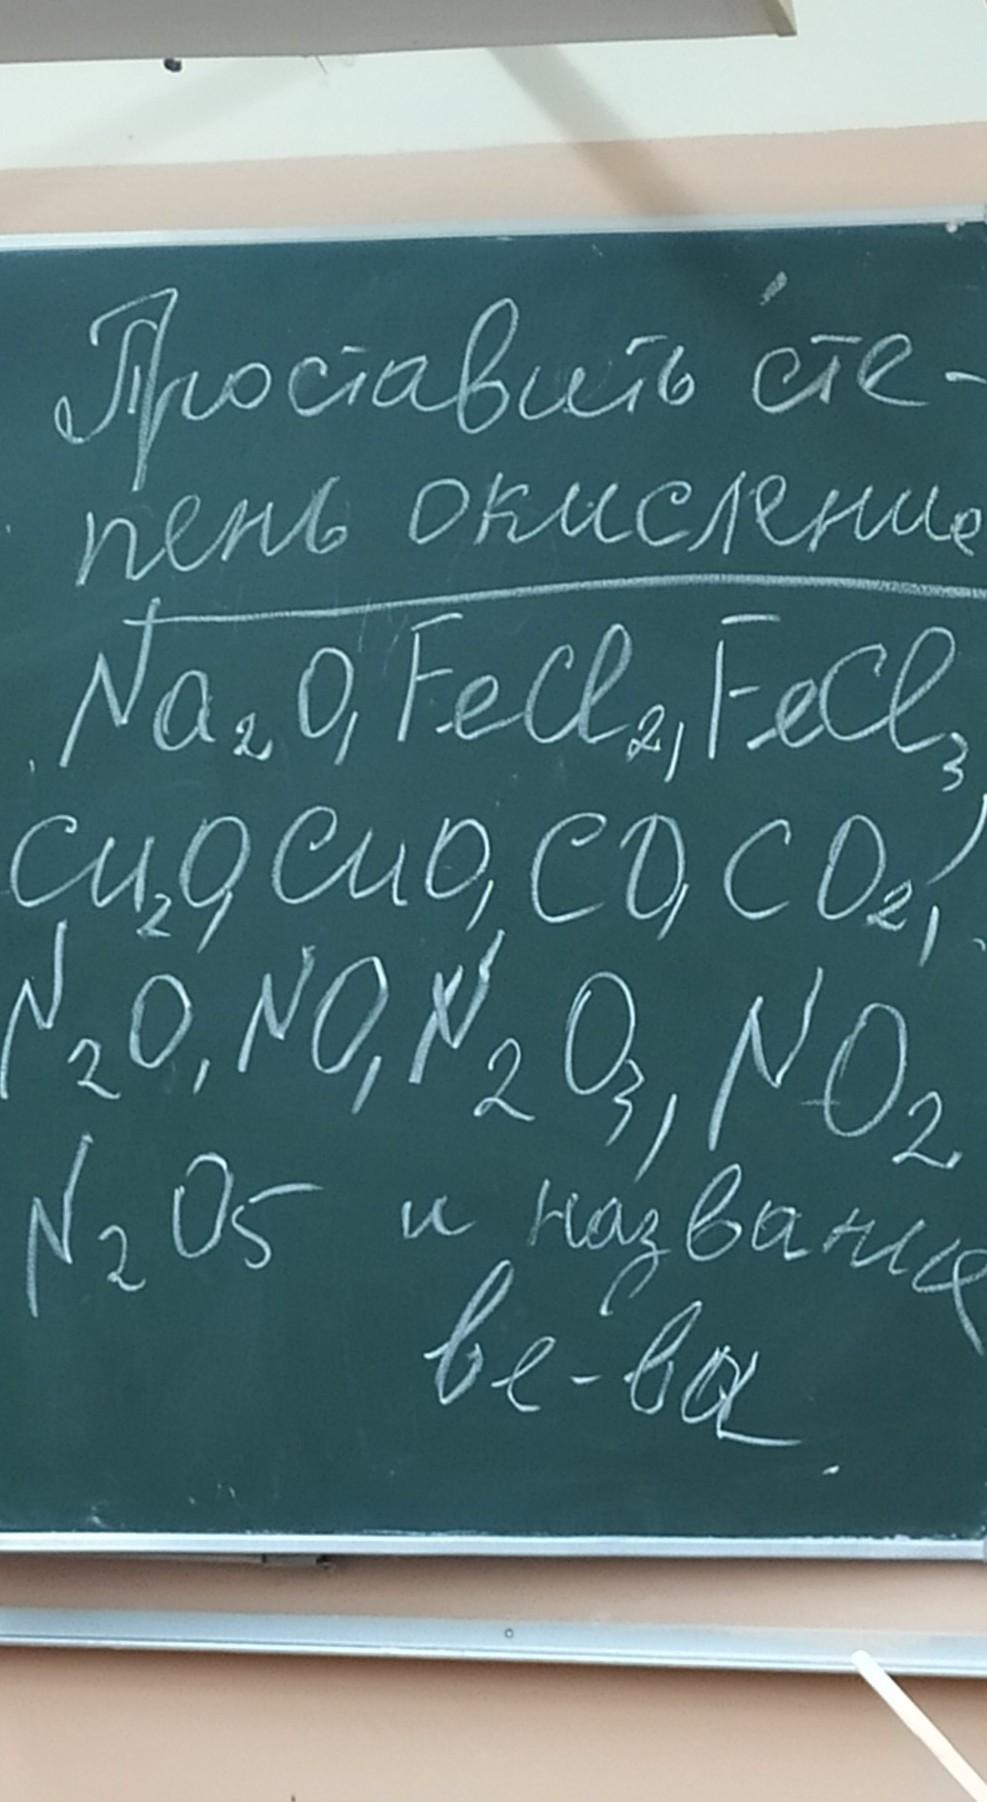 Проставить сте-
пень окисление
Na₂O, FeCl₂, FeCl₃
Cu₂O, CuO, CO, CO₂,
N₂O, NO, N₂O₃, NO₂
N₂O₅ и названия
ве-ва